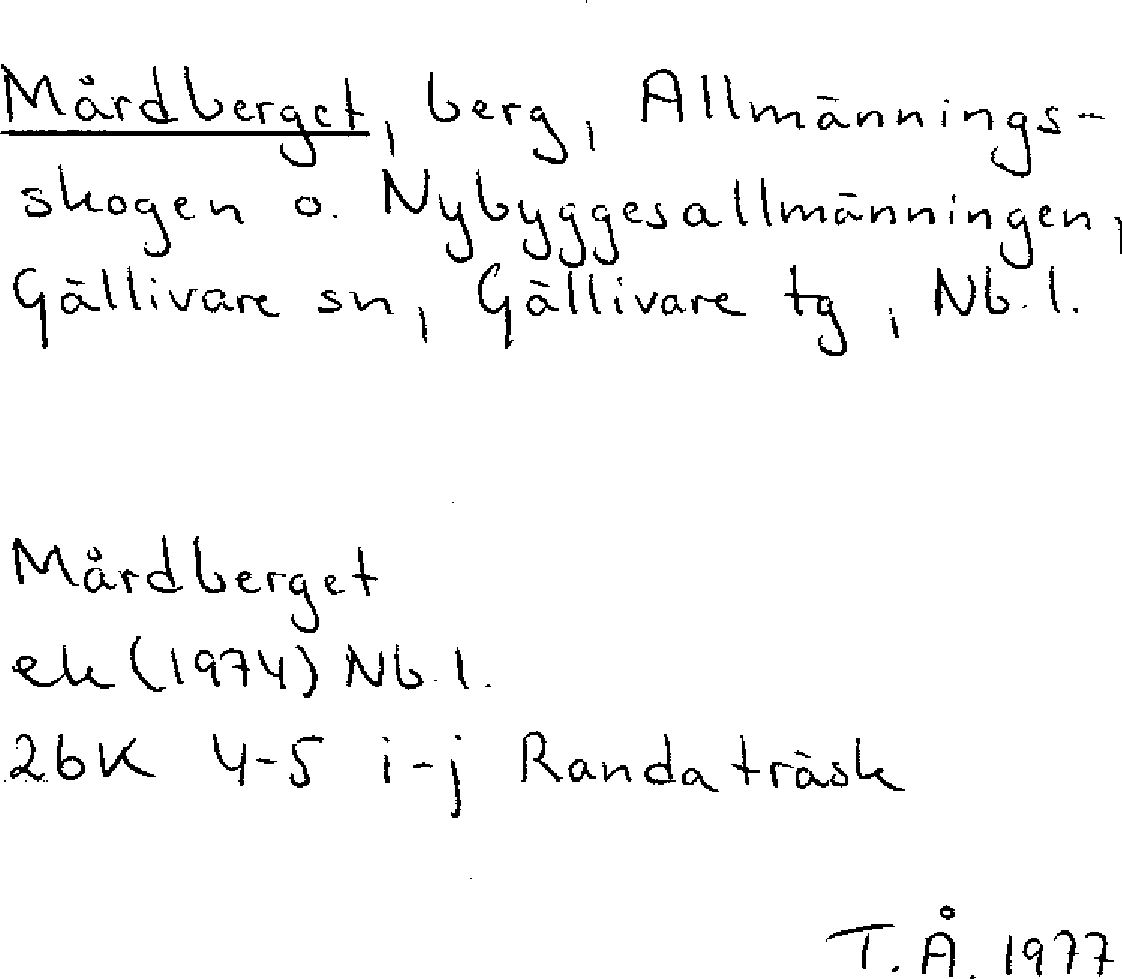 Mårdberget, berg, Allmännings-
skogen o. Nybyggesallmänningen,
Gällivare sn, Gällivare tg, Nb. l.
Mårdberget
ek (1974) Nb. l.
26K 4-5 i-j Randaträsk
T. Å. 1977